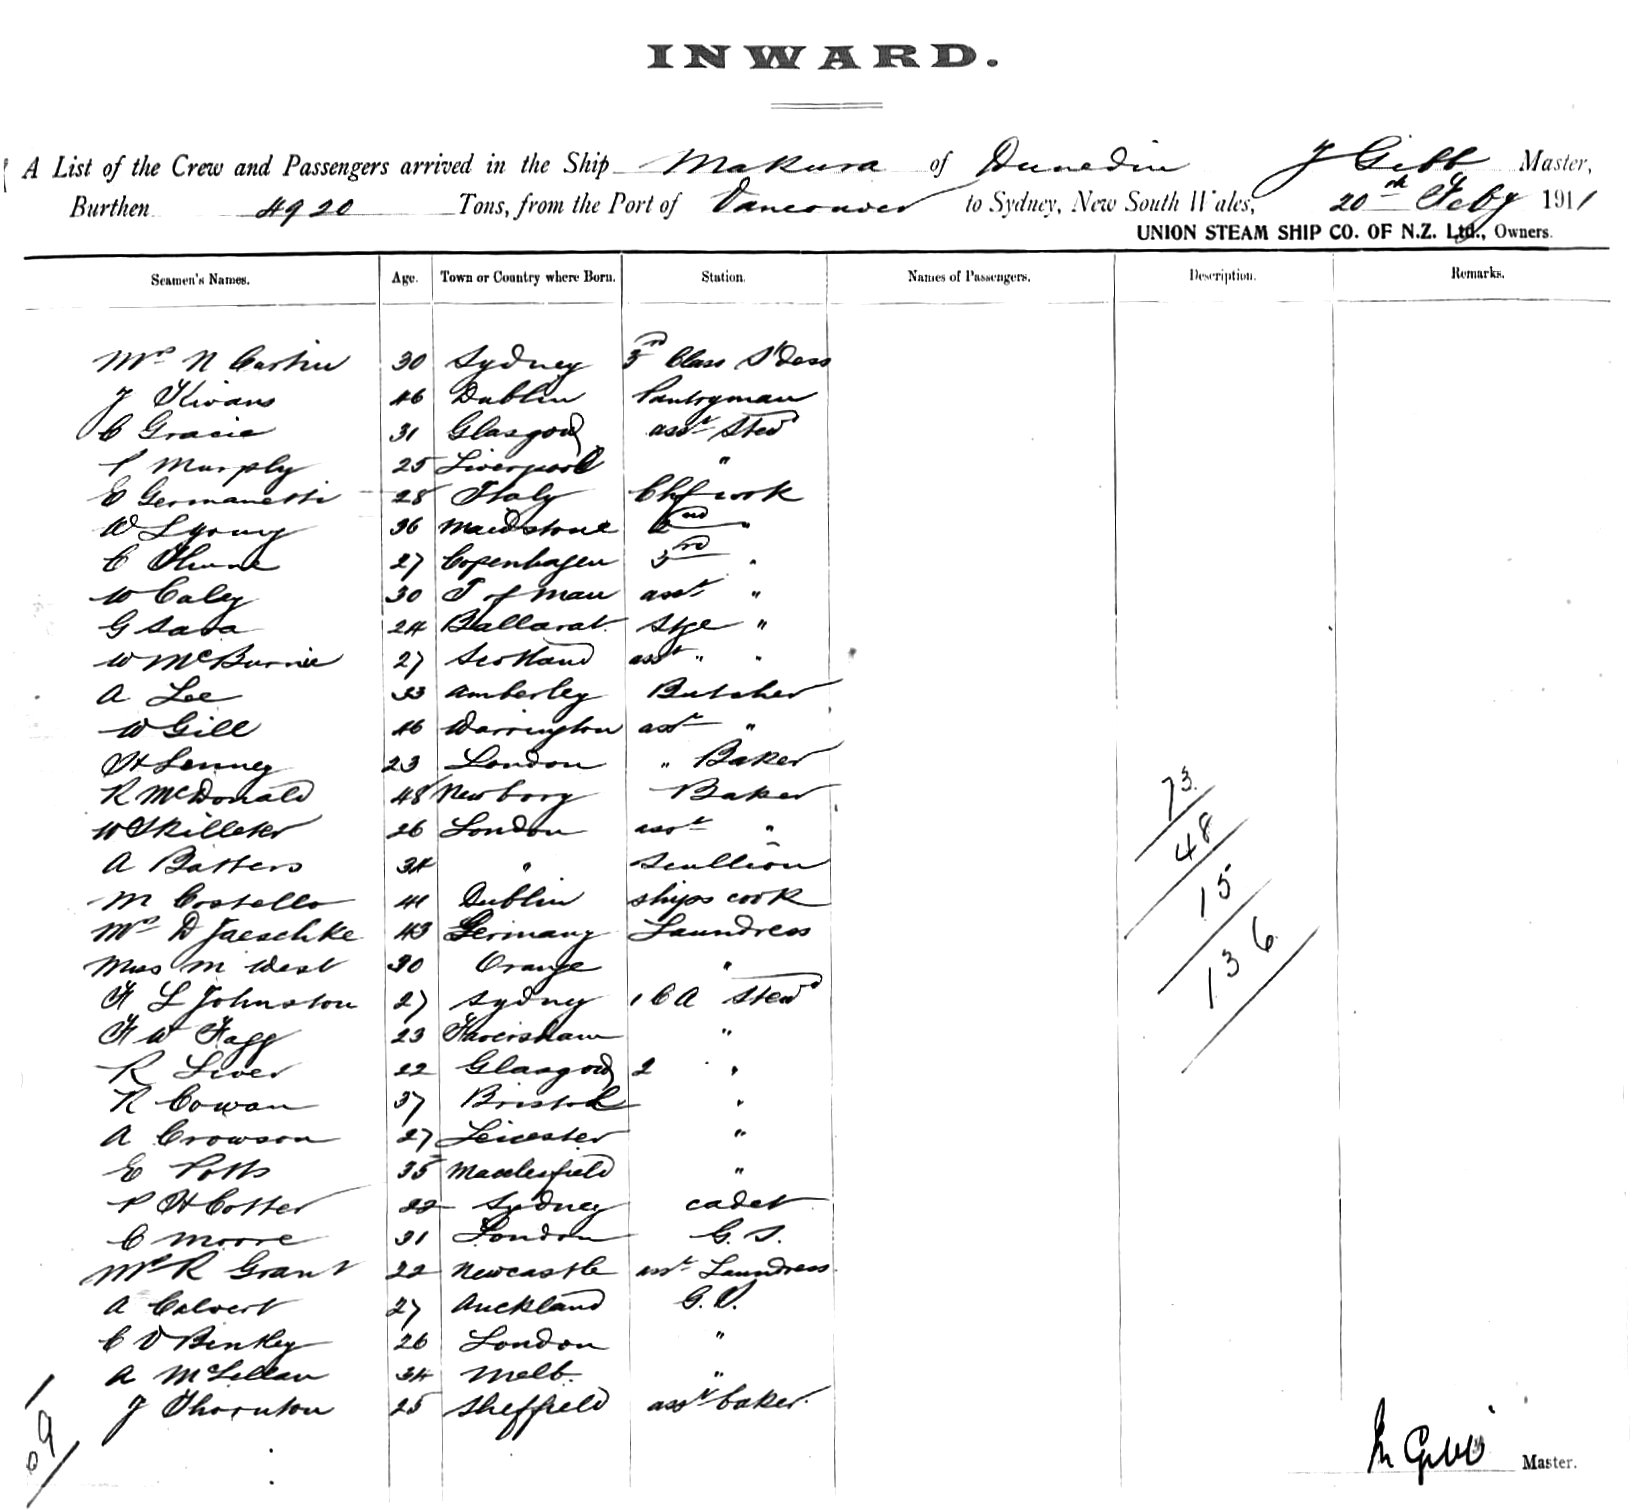 INWARD.
A List of the Crew and Passengers arrived in the Ship Makura of Dunedin J Gibb Master,
Burthen 4920 Tons, from the Port of Vancouver to Sydney, New South Wales, 20th Feby 1911
UNION STEAM SHIP CO. OF N.Z. Ltd., Owners.
Seamen's Names. Age. Town or Country where Born. Station. Names of Passengers. Description. Remarks.
Mrs N 30 Sydney 3rd Class S'dess
J Kivans 46 Dublin Pantryman
C Gracie 31 Glasgow asst Stewd
P Murphy 25 Liverpool "
E Germanetti 28 Italy Chf cook
W Lyoung 36 Maidstone 2nd "
C Thune 27 Copenhagen 3rd "
W Caley 30 I of Man asst "
G Sara 24 Ballarat Stge "
W McBurnie 27 Scotland asst " "
A Lee 33 Amberley Butcher
W Gill 46 Warrington asst "
H Lenney 23 London " Baker
R McDonald 48 Newbory Baker
W Skilleter 26 London asst "
A Batters 34 " Scullion
M Costello 41 Dublin ships cook
Mrs D Jaeschke 43 Germany Laundress
Miss M West 30 Orange "
F L Johnston 27 Sydney 1 C A Stewd
F W Fagg 23 Faversham "
R Liver 22 Glasgow 2 "
R Cowan 37 Bristol "
A Crowson 27 Leicester "
E Potts 35 Macclesfield "
P H Cotter 22 Sydney cadet
C Moore 31 London G.S.
Mrs R Grant 22 Newcastle asst Laundress
A Calvert 27 Auckland G.S.
C V Binkley 26 London "
A McLellan 34 Melb. "
J Thornton 25 Sheffield asst baker.
73
48
15
136
J Gibb Master.